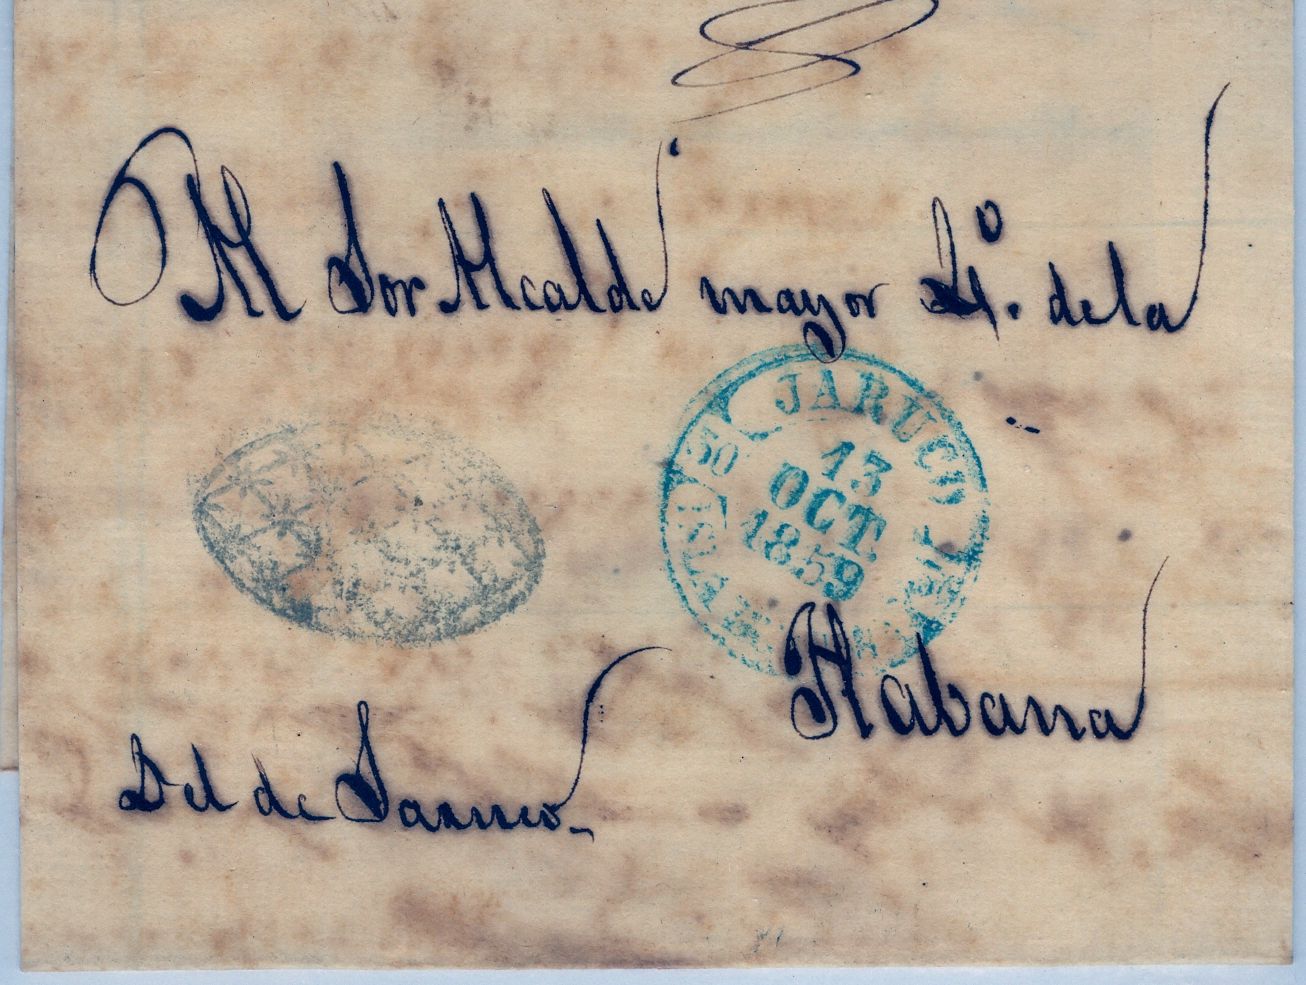 Al Sor Alcalde mayor 4º. de la
JARUCO
50
13
OCT.
1859
Habana
Del de Jaruco